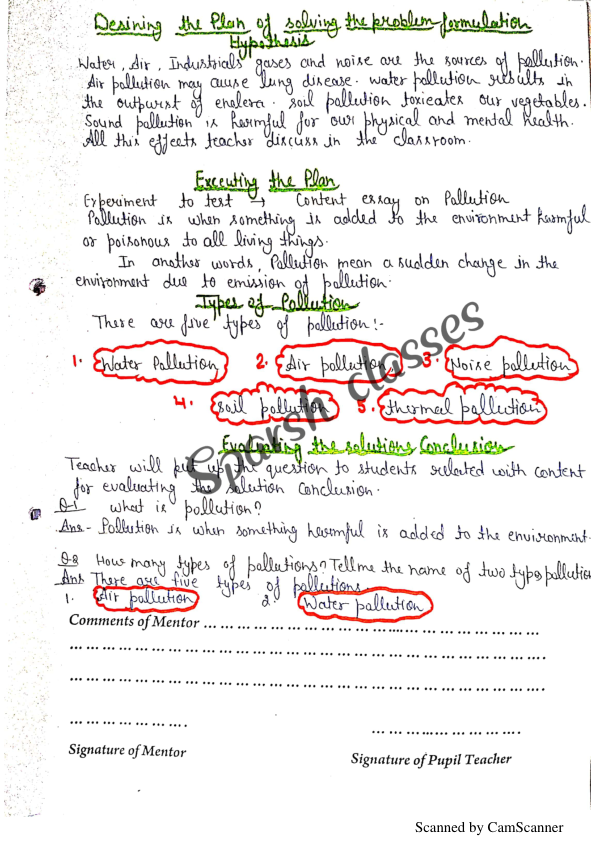 Desining the Plan of solving the problem formulation
Hypothesis
Water, Air, Industrials gases and noise are the sources of pollution.
Air pollution may cause lung disease. water pollution results in
the outpurst of enalera. soil pollution toxicates our vegetables.
Sound pollution is harmful for our physical and mental health.
All this effects teacher discuss in the classroom.
Executing the Plan
Experiment to test → Content essay on Pollution
Pollution is when something is added to the environment harmful
or poisonous to all living things.
In another words, Pollution mean a sudden change in the
environment due to emission of pollution.
Types of Pollution
There are five types of pollution:-
1. Water Pollution 2. Air pollution 3. Noise pollution
4. soil pollution 5. thermal pollution
Sparsh classes
Evaluating the solutions Conclusion
Teacher will put up the question to students related with content
for evaluating the solution conclusion.
Q-1 what is pollution?
Ans - Pollution is when something harmful is added to the environment.
Q-2 How many types of pollutions? Tell me the name of two types pollution
Ans There are five types of pollutions.
1. Air pollution 2. Water pollution
Comments of Mentor
Signature of Mentor Signature of Pupil Teacher
Scanned by CamScanner